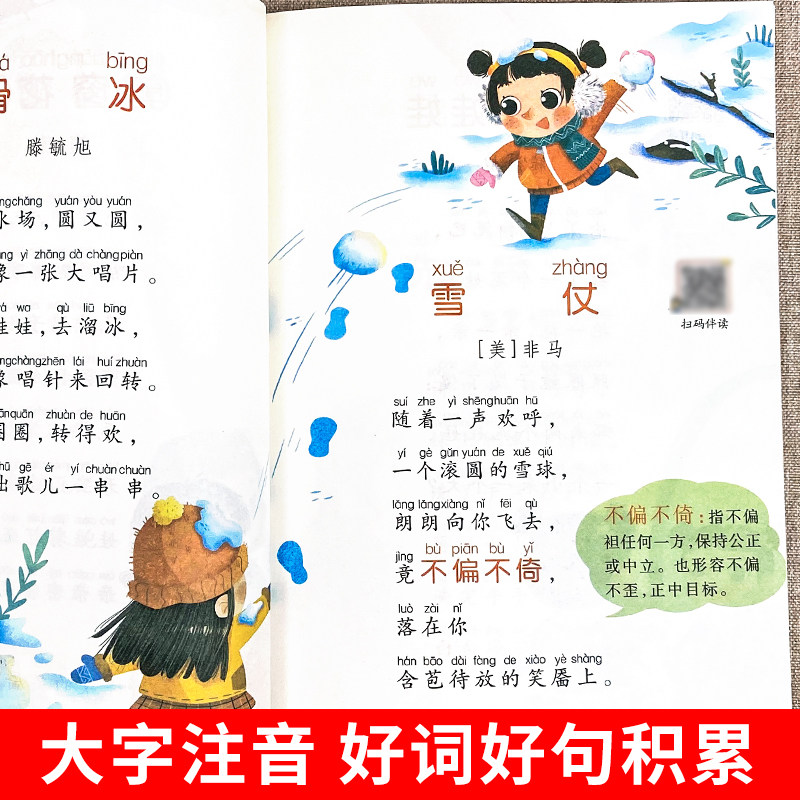 bīng
滑 冰
滕毓旭
chǎng yuán yòu yuán
冰场,圆又圆,
yì zhāng dà chàngpiàn
像一张大唱片。
wa qù liū bīng
娃娃,去溜冰,
chàngzhēn lái huí zhuàn
像唱针来回转。
quān zhuàn de huān
圈圈,转得欢,
gē ér yí chuàn chuàn
出歌儿一串串。
xuě zhàng
雪 仗
扫码伴读
[美]非马
suí zhe yì shēnghuān hū
随着一声欢呼,
yí gè gǔn yuán de xuě qiú
一个滚圆的雪球,
lǎng lǎngxiàng nǐ fēi qù
朗朗向你飞去,
jìng bù piān bù yǐ
竟不偏不倚,
luò zài nǐ
落在你
hán bāo dài fàng de xiào yè shàng
含苞待放的笑靥上。
不偏不倚:指不偏
袒任何一方,保持公正
或中立。也形容不偏
不歪,正中目标。
大字注音 好词好句积累